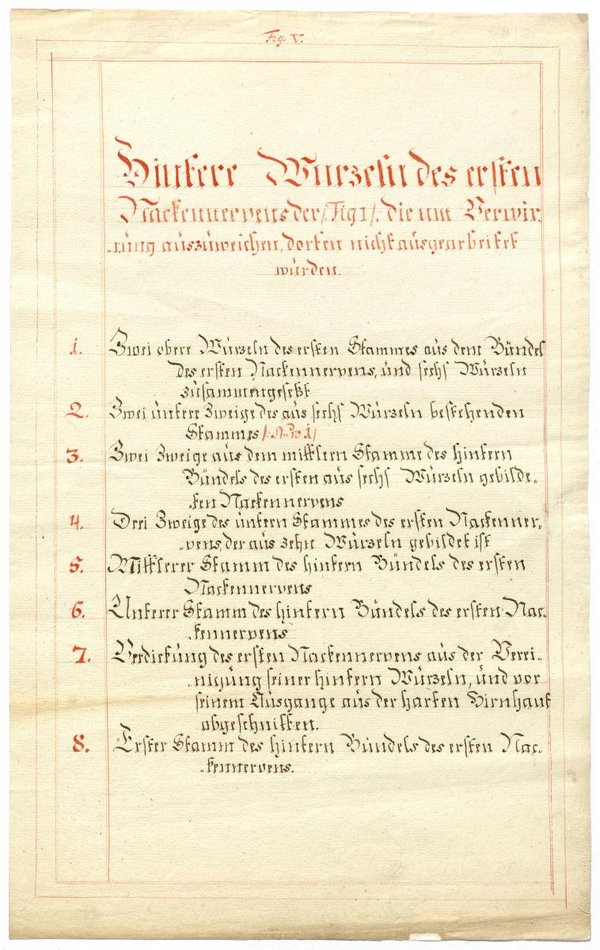 Fig. V.
Hintere Wurzeln des ersten
Nackennervens der /: Fig 1 /. die um Verwir:
„rung auszuweichen, dorten nicht ausgearbeitet
würden.
1. Zwei obere Würzeln des ersten Stammes aus dem Bündel
des ersten Nackennervens, und sechs Würzeln
zusammengesetzt
2. Zwei untere Zweige des aus sechs Würzeln bestehenden
Stammes /: N.ro 1 /
3. Zwei Zweige aus dem mittlern Stamme des hintern
Bündels des ersten aus sechs Würzeln gebilde=
ten Nackennervens
4. Drei Zweige des untern Stammes des ersten Nackenner,
„vens, der aus zehn Würzeln gebildet ist
5. Mittlerer Stamm des hintern Bündels des ersten
Nackennervens
6. Unterer Stamm des hintern Bündels des ersten Nac„
„kennervens
7. Verdickung des ersten Nackennervens aus der Verei„
„nigung seiner hintern Würzeln, und vor
seinem Ausgange aus der harten Hirnhaut
abgeschnitten.
8. Erster Stamm des hintern Bündels des ersten Nac„
„kennervens.